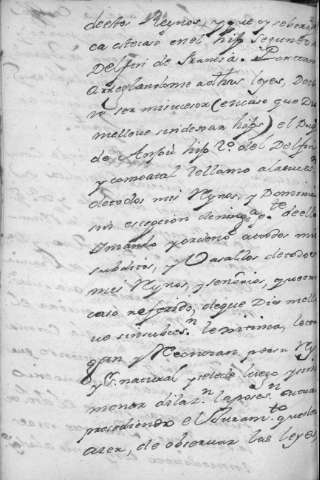 destos Reynos, y que y se verifica
ca este caso en el hijo segundo
Delfin de Francia. Por tanto
Arreglandome a dhas leyes, Declaro
ro ser mi sucesor (en caso que Dios
me lleve sin dexar hijos) el Duq
de Anjou hijo 2º del Delfin
y como a tal le llamo a la succesn
de todos mis Rynos, y Dominios
sin escepcion de ningª pte de ellos
Y mando y ordeno a todos mis
subditos, y Vasallos de todos
mis Rynos, y señorios, que en
caso referido, de que Dios me lle
ve sin subcesn lexitima, le ten
gan y Reconozcan por su Ry
y Sr natural y se le de luego y sin la
menor dilazn la posesn actual
precediendo el Juramto que debe
azer, de observar las leyes,